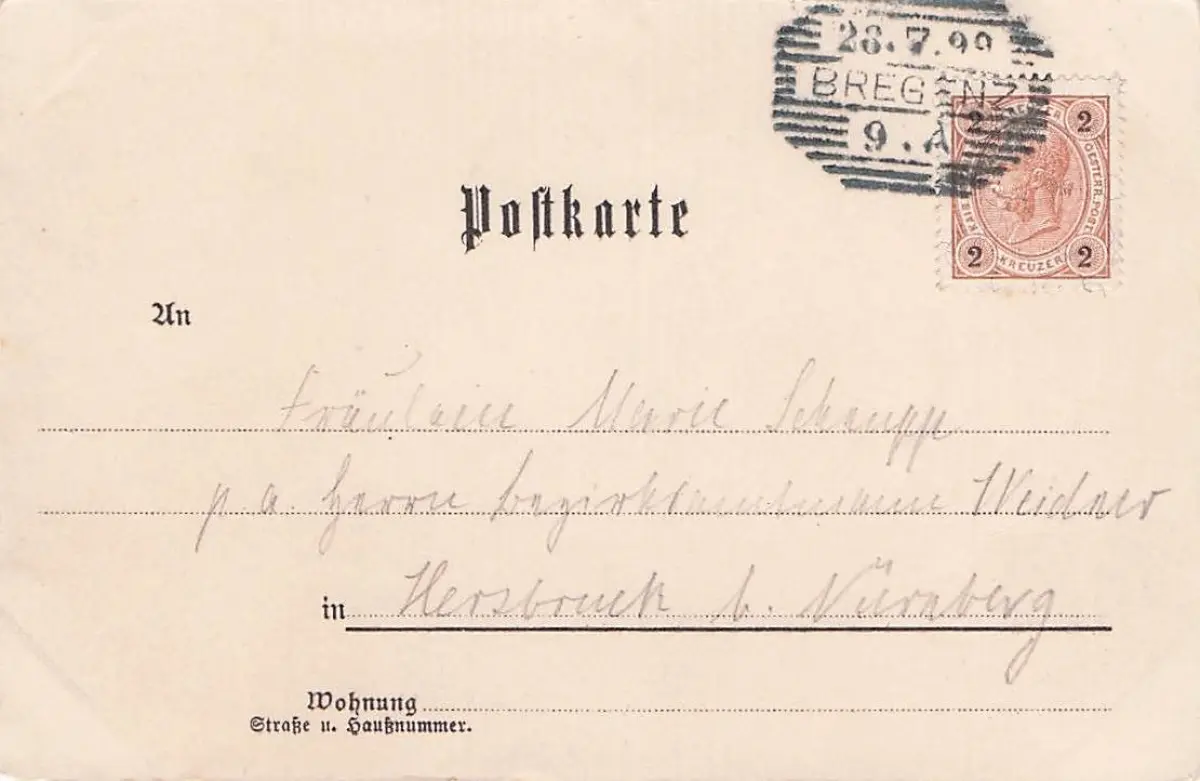 28.7.99
BREGENZ
9.A
2 2
KREUZER
OESTERR. POST
2 KREUZER 2
Postkarte
An
Fräulein Marie Schaupp
p. a. Herrn Bezirksamtmann Weidner
in Hersbruck b. Nürnberg
Wohnung
Straße u. Haußnummer.